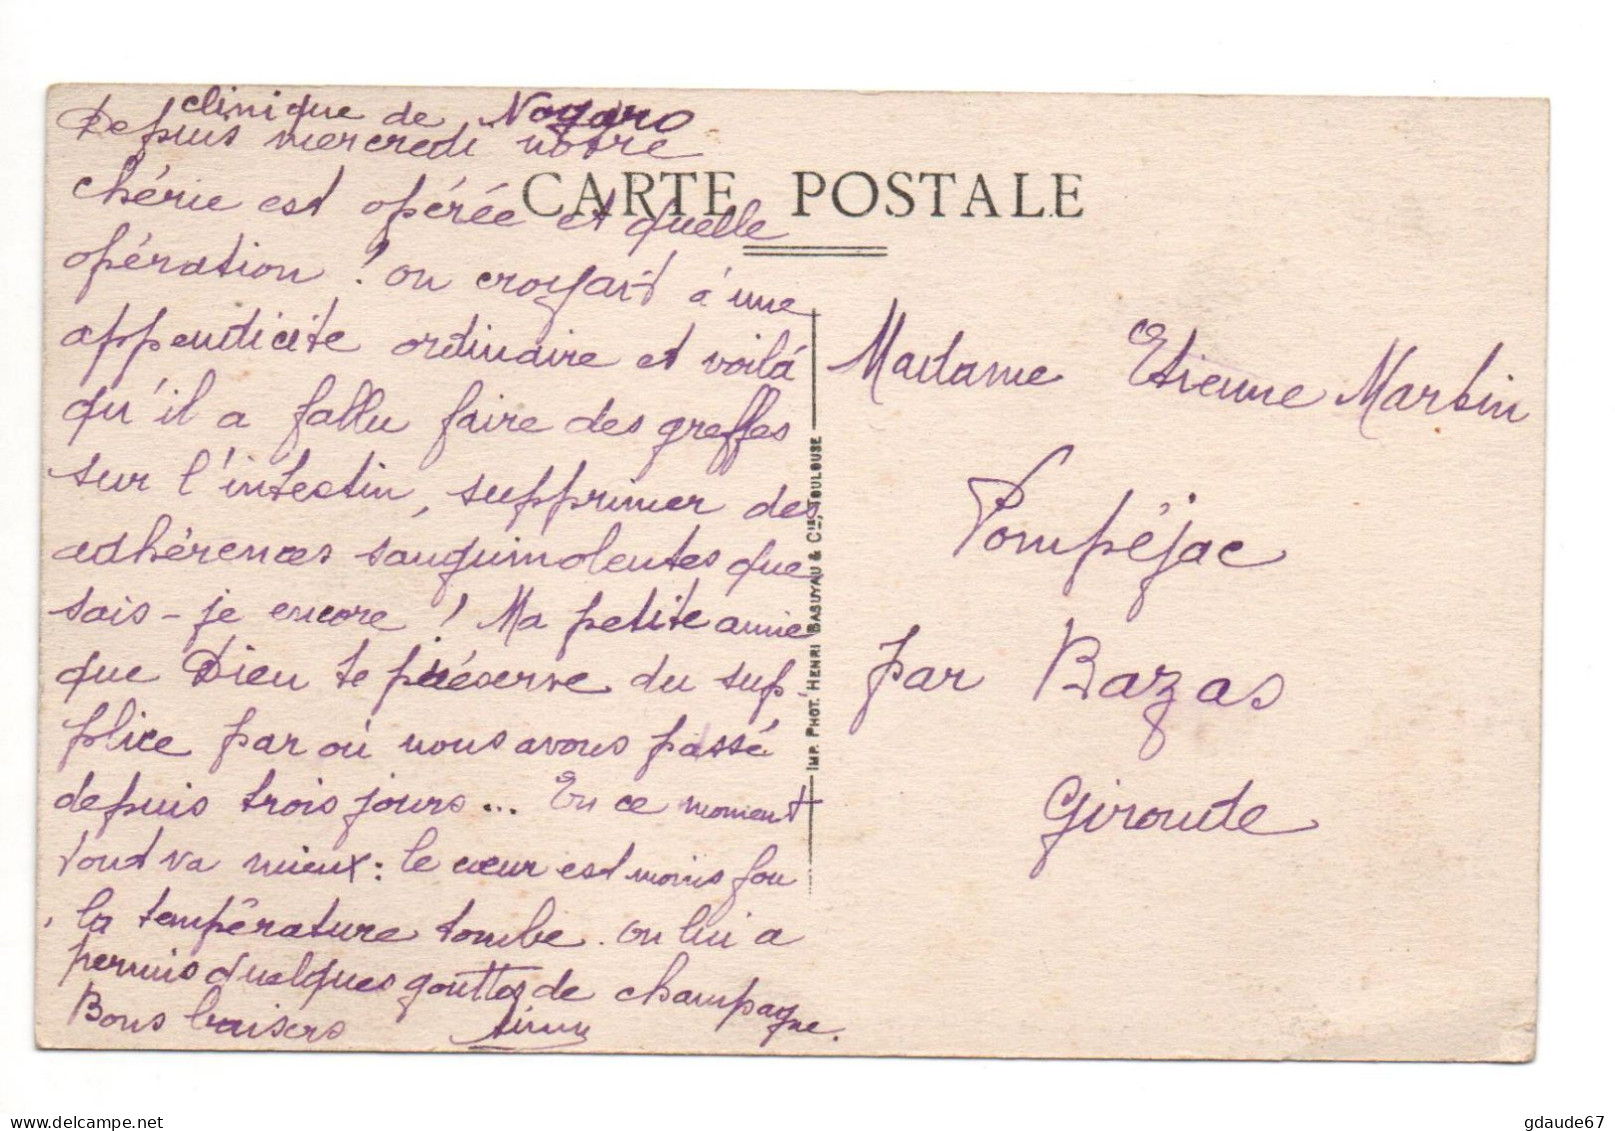 clinique de Nogaro
Depuis mercredi notre
chérie est opérée et quelle
opération ! on croyait à une
appendicite ordinaire et voilà
qu'il a fallu faire des greffes
sur l'intestin, supprimer des
adhérences sanguinolentes que
sais-je encore ! Ma petite amie
que Dieu te préserve du sup-
plice par où nous avons passé
depuis trois jours... En ce moment
tout va mieux : le cœur est moins fou
, la température tombe. on lui a
permis quelques gouttes de champagne.
Bons baisers
CARTE POSTALE
IMP. PHOT. HENRI BASUYAU & CIE, TOULOUSE
Madame Etienne Martin
Pompéjac
par Bazas
Gironde
gdaude67